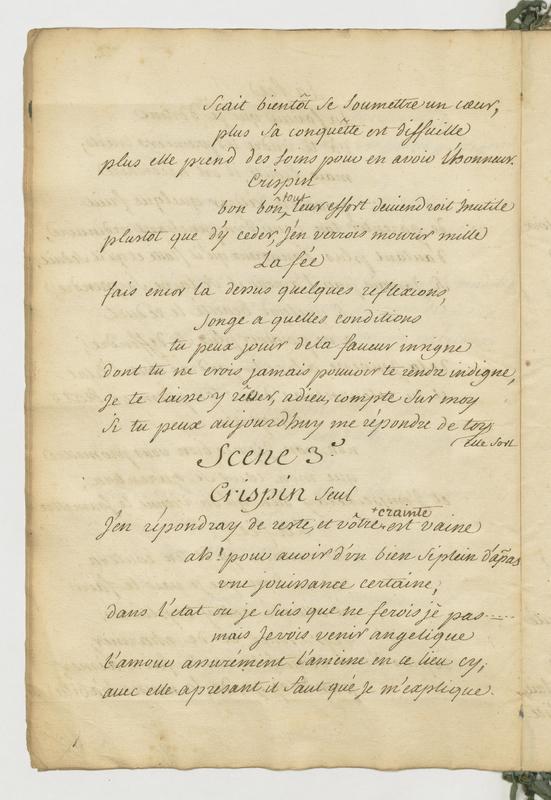 Sçait bientôt se soumettre un cœur,
plus sa conquête est difficille
plus elle prend des soins pour en avoir l'honneur.
Crispin
bon bon, tout leur effort deviendroit Inutile
plustot que d'y ceder, J'en verrois mourir mille
La fée
fais encor la dessus quelques reflexions,
songe a quelles conditions
tu peux jouir de la faveur insigne
dont tu ne crois jamais pouvoir te rendre indigne,
Je te laisse y rêver, adieu, compte sur moy
si tu peux aujourdhuy me répondre de toy.
Elle sort
Scene 3.e
Crispin seul
J'en répondray de reste, et vôtre crainte est vaine
ah! pour avoir d'un bien si plein d'apas
une jouissance certaine,
dans l'état ou je suis que ne ferois je pas
mais Je vois venir angelique
l'amour assurément l'ameine en ce lieu cy,
avec elle apresant il faut que Je m'explique.